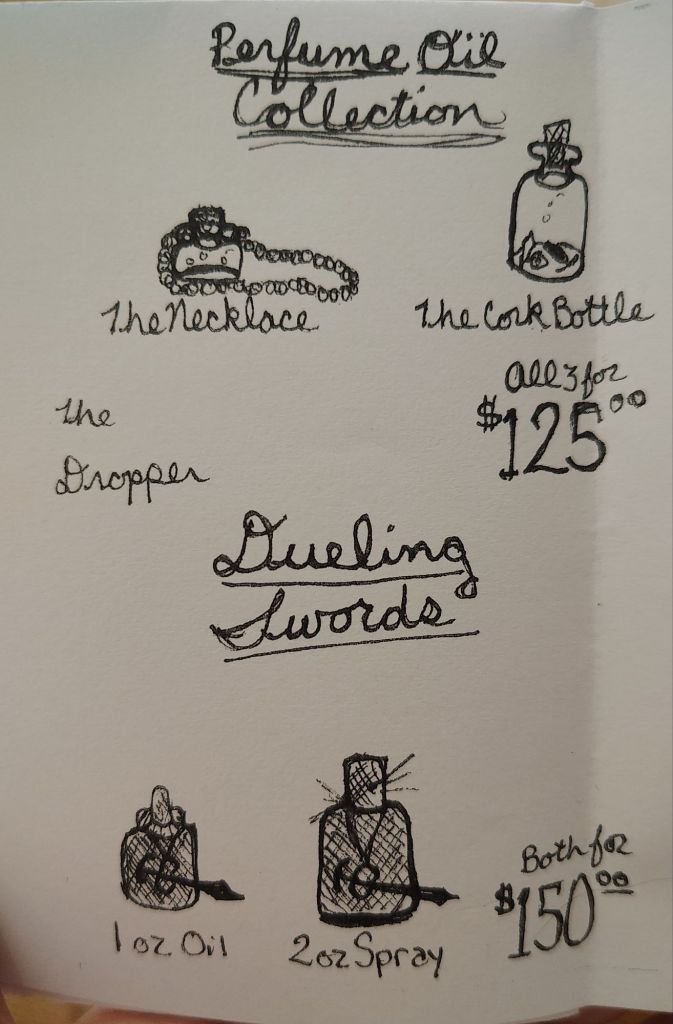 Perfume Oil
Collection
The Necklace
The Cork Bottle
All 3 for
$125.00
The
Dropper
Dueling
Swords
1 oz Oil
2 oz Spray
Both for
$150.00